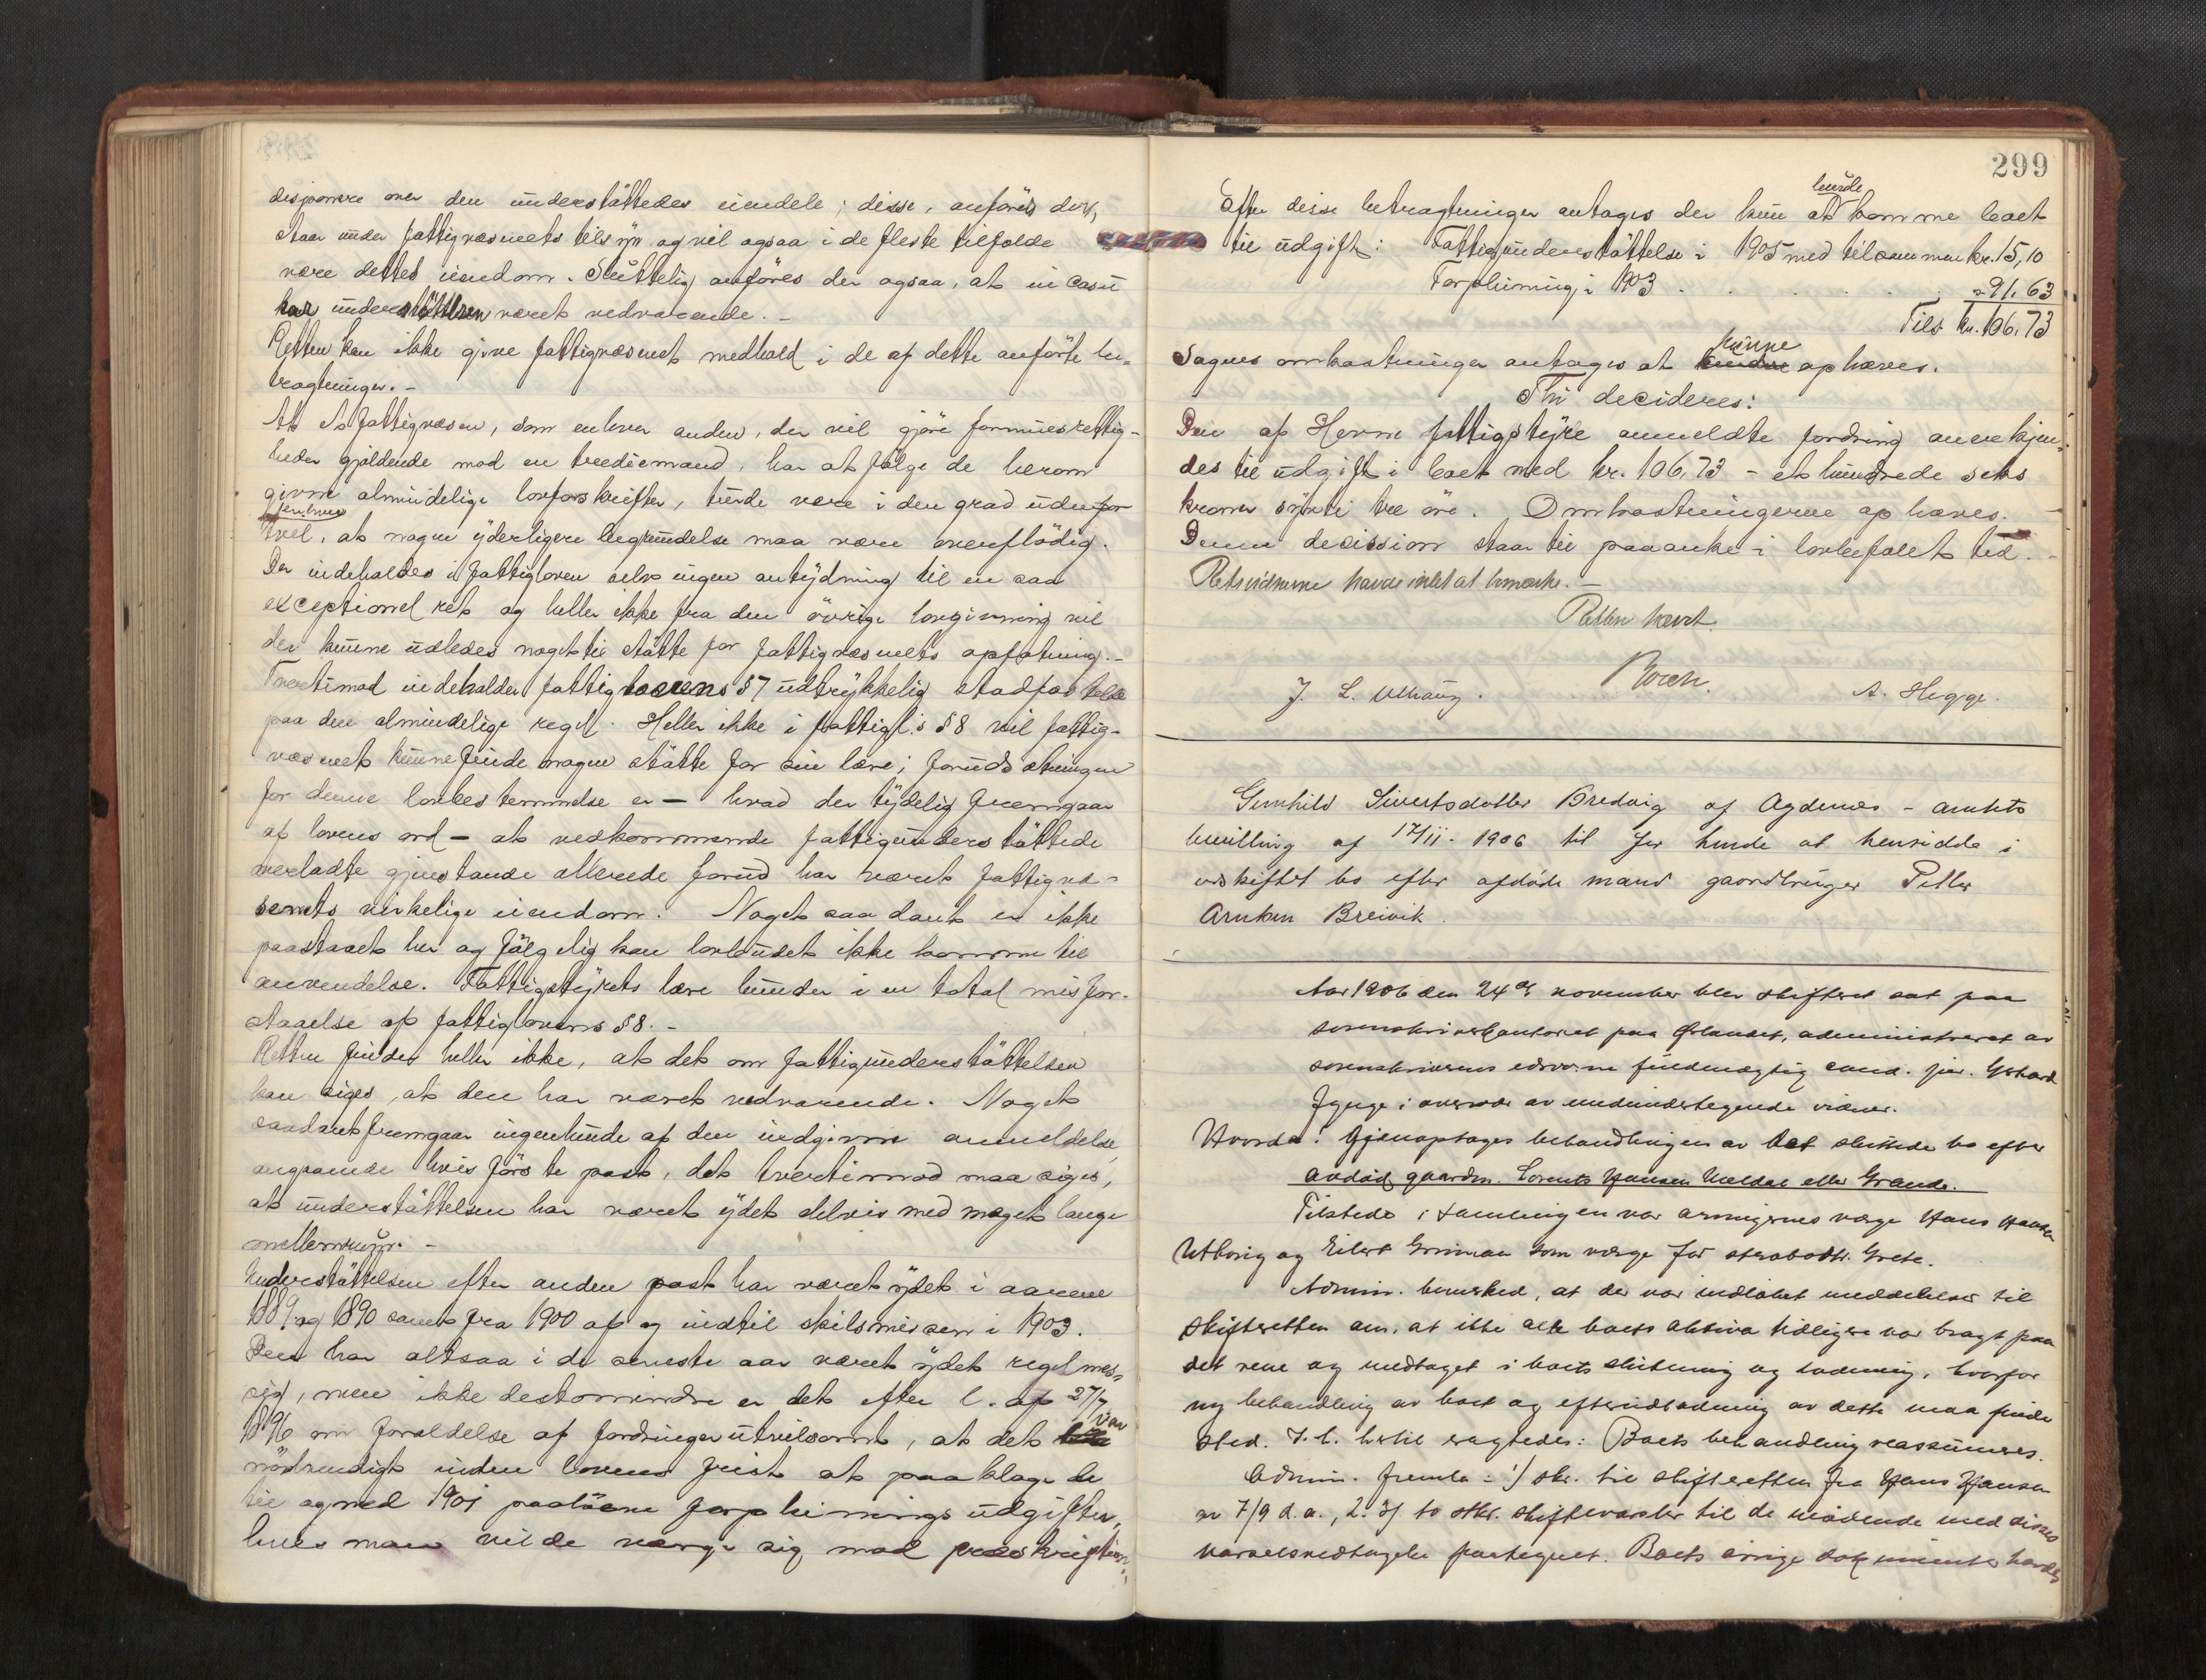 disponere over den understöttedes eiendele; disse, anföres der,
staar under fattigvæsnets tilsyn og vil ogsaa i de fleste tilfælde
være dettes eiendom. Sluttelig anföres der ogsaa, at in casu
har understöttelsen været vedvarende. –
Retten kan ikke give fattigvæsnet medhold i de af dette anförte be-
tragtninger. –
At et fattigvæsen, som enhver anden, der vil gjöre formuesrettig-
heder gjældende mod en trediemand, har at fölge de herom
givne almindelige lovforskrifter, turde være i den grad udenfor
tvil, at nogen yderligere begrundelse maa være overflödig.
Der indeholdes i fattigloven selv ingen antydning til en saa
exceptionel ret og heller ikke fra den övrige lovgivning vil
der kunne udledes noget til stötte for fattigvæsnets opfatning. –
Tvertimod indeholder fattiglovens § 7 udtrykkelig stadfæstelse
paa den almindelige regel. Heller ikke i fattigl.s § 8 vil fattig-
væsnet kunne finde nogen stötte for sin lære; forudsætningen
for denne lovbestemmelse er – hvad der tydelig fremgaar
af lovens ord – at vedkommende fattigunderstöttede
overladte gjenstande allerede forud har været fattigvæ-
senets virkelige eiendom. Noget saadant er ikke
paastaaet her og fölgelig kan lovbudet ikke komme til
anvendelse. Fattigstyrets lære bunder i en total misfor-
staaelse af fattiglovens § 8. –
Retten finder heller ikke, at det om fattigunderstöttelsen
kan siges, at den har været vedvarende. Noget
saadant fremgaar ingenlunde af den indgivne anmeldelse,
angaaende hvis förste post, det tvertimod maa siges,
at understöttelsen har været ydet delvis med meget lange
mellemrum. –
Understöttelsen efter anden post har været ydet i aarene
1889 og 1890 samt fra 1900 af og indtil skilsmissen i 1903.
Den har altsaa i de seneste aar været ydet regelmæs-
sig, men ikke destomindre er det efter l. af 27/7
1896 om forældelse af fordringer utvilsomt, at det var
nödvendigt inden lovens frist at paaklage de
til og med 1901 paalöbne forpleiningsudgifter,
hvis man vilde værge sig mod præskription.
299
Efter disse betragtninger antages der kun at burde komme boet
til udgift: Fattigunderstöttelse i 1905 med tilsammen kr. 15,10
Forpleining i 1903 . . . . . . " 91.63
Tils. kr. 106,73
Sagens omkostninger antages at kunne ophæves.
Thi decideres:
Den af Hevne fattigstyre anmeldte fordring anerkjen-
des til udgift i boet med kr. 106,73 – et hundrede seks
kroner sytti tre öre. Omkostningerne ophæves. –
Denne decission staar til paaanke i lovbefalet tid. –
Retsvidnerne havde intet at bemærke. –
Retten hævet.
J. L. Ushaug. Roch. A. Hegge.
Gunhild Sivertsdatter Bredvig af Agdenes – amtets
bevilling af 17/11. 1906 til for hende at hensidde i
uskiftet bo efter afdöde mand gaardbruger Petter
Arntsen Breivik.
Aar 1906 den 24de november blev skifteret sat paa
sorenskriverkontoret paa Ørlandet, administreret av
sorenskriverens edsvorne fuldmægtig cand. jur.
i overvær av medundertegnede vidner.
Hvorda: Gjenoptages behandlingen av det sluttede bo efter
avdød gaardm. Lorents Hansen Meldal eller Grande.
Tilstede i samlingen var arvingernes værge Hans Hansen
Uthaug og Eilert Grinnan som værge for
Grete.
Admin. bemerked, at der var indløbet meddelelse til
skifteretten om, at ikke alle boets aktiva tidligere var bragt paa
det rene og medtaget i boets slutning og lodning, hvorfor
ny behandling av boet og efterudlodning av dette maa finde
sted. I h. hertil eragtedes: Boets behandling reassumeres.
Admin. fremla: 1) skr. til skifteretten fra Hans Hansen
av 7/9 d.a., 2. 3) to stkr. skiftevarsler til de mødende med disses
varselsvedtagelse paategnet. Boets øvrige dokumenter havdes